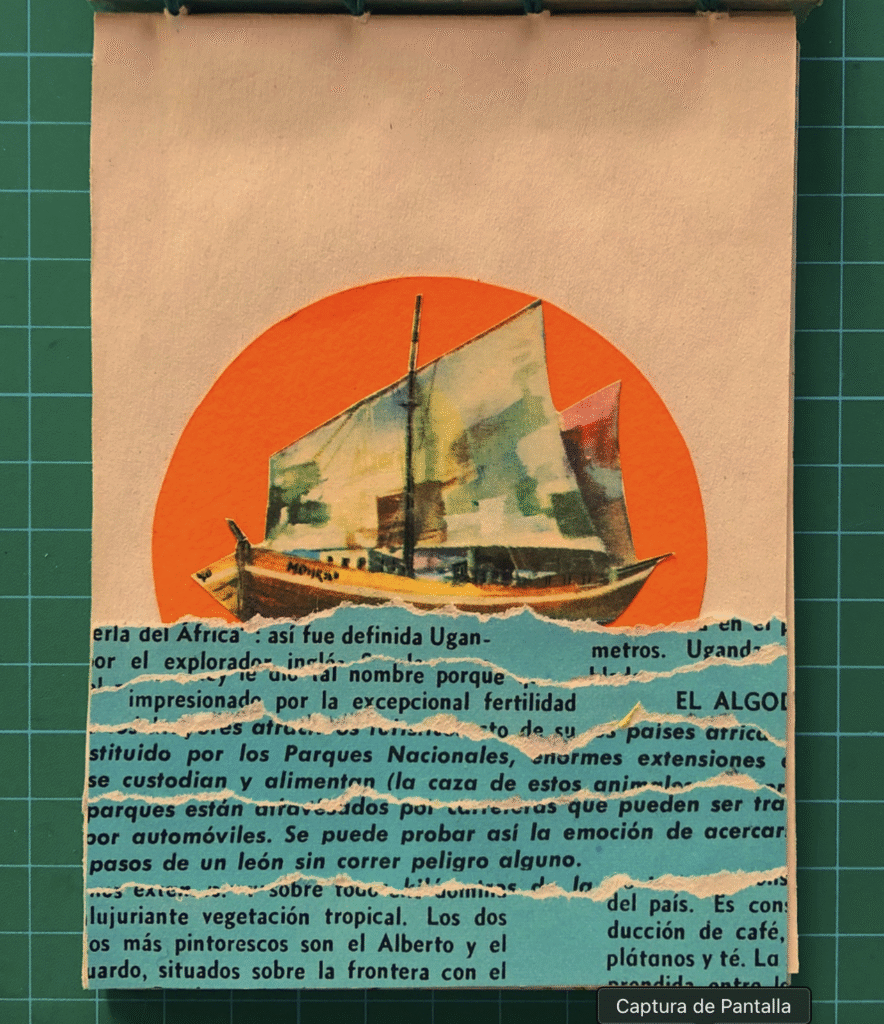 erla del África" : así fue definida Ugan-
or el explorador
metros. Uganda
le dio tal nombre porque
impresionado por la excepcional fertilidad
EL ALGOD
de su
países africa
stituido por los Parques Nacionales, enormes extensiones
se custodian y alimentan (la caza de estos animales
parques están atravesados por carreteras que pueden ser tra
por automóviles. Se puede probar así la emoción de acercar
pasos de un león sin correr peligro alguno.
sobre
de la
lujuriante vegetación tropical. Los dos
os más pintorescos son el Alberto y el
uardo, situados sobre la frontera con el
del país. Es cons
ducción de café,
plátanos y té. La
prendida entre
Captura de Pantalla